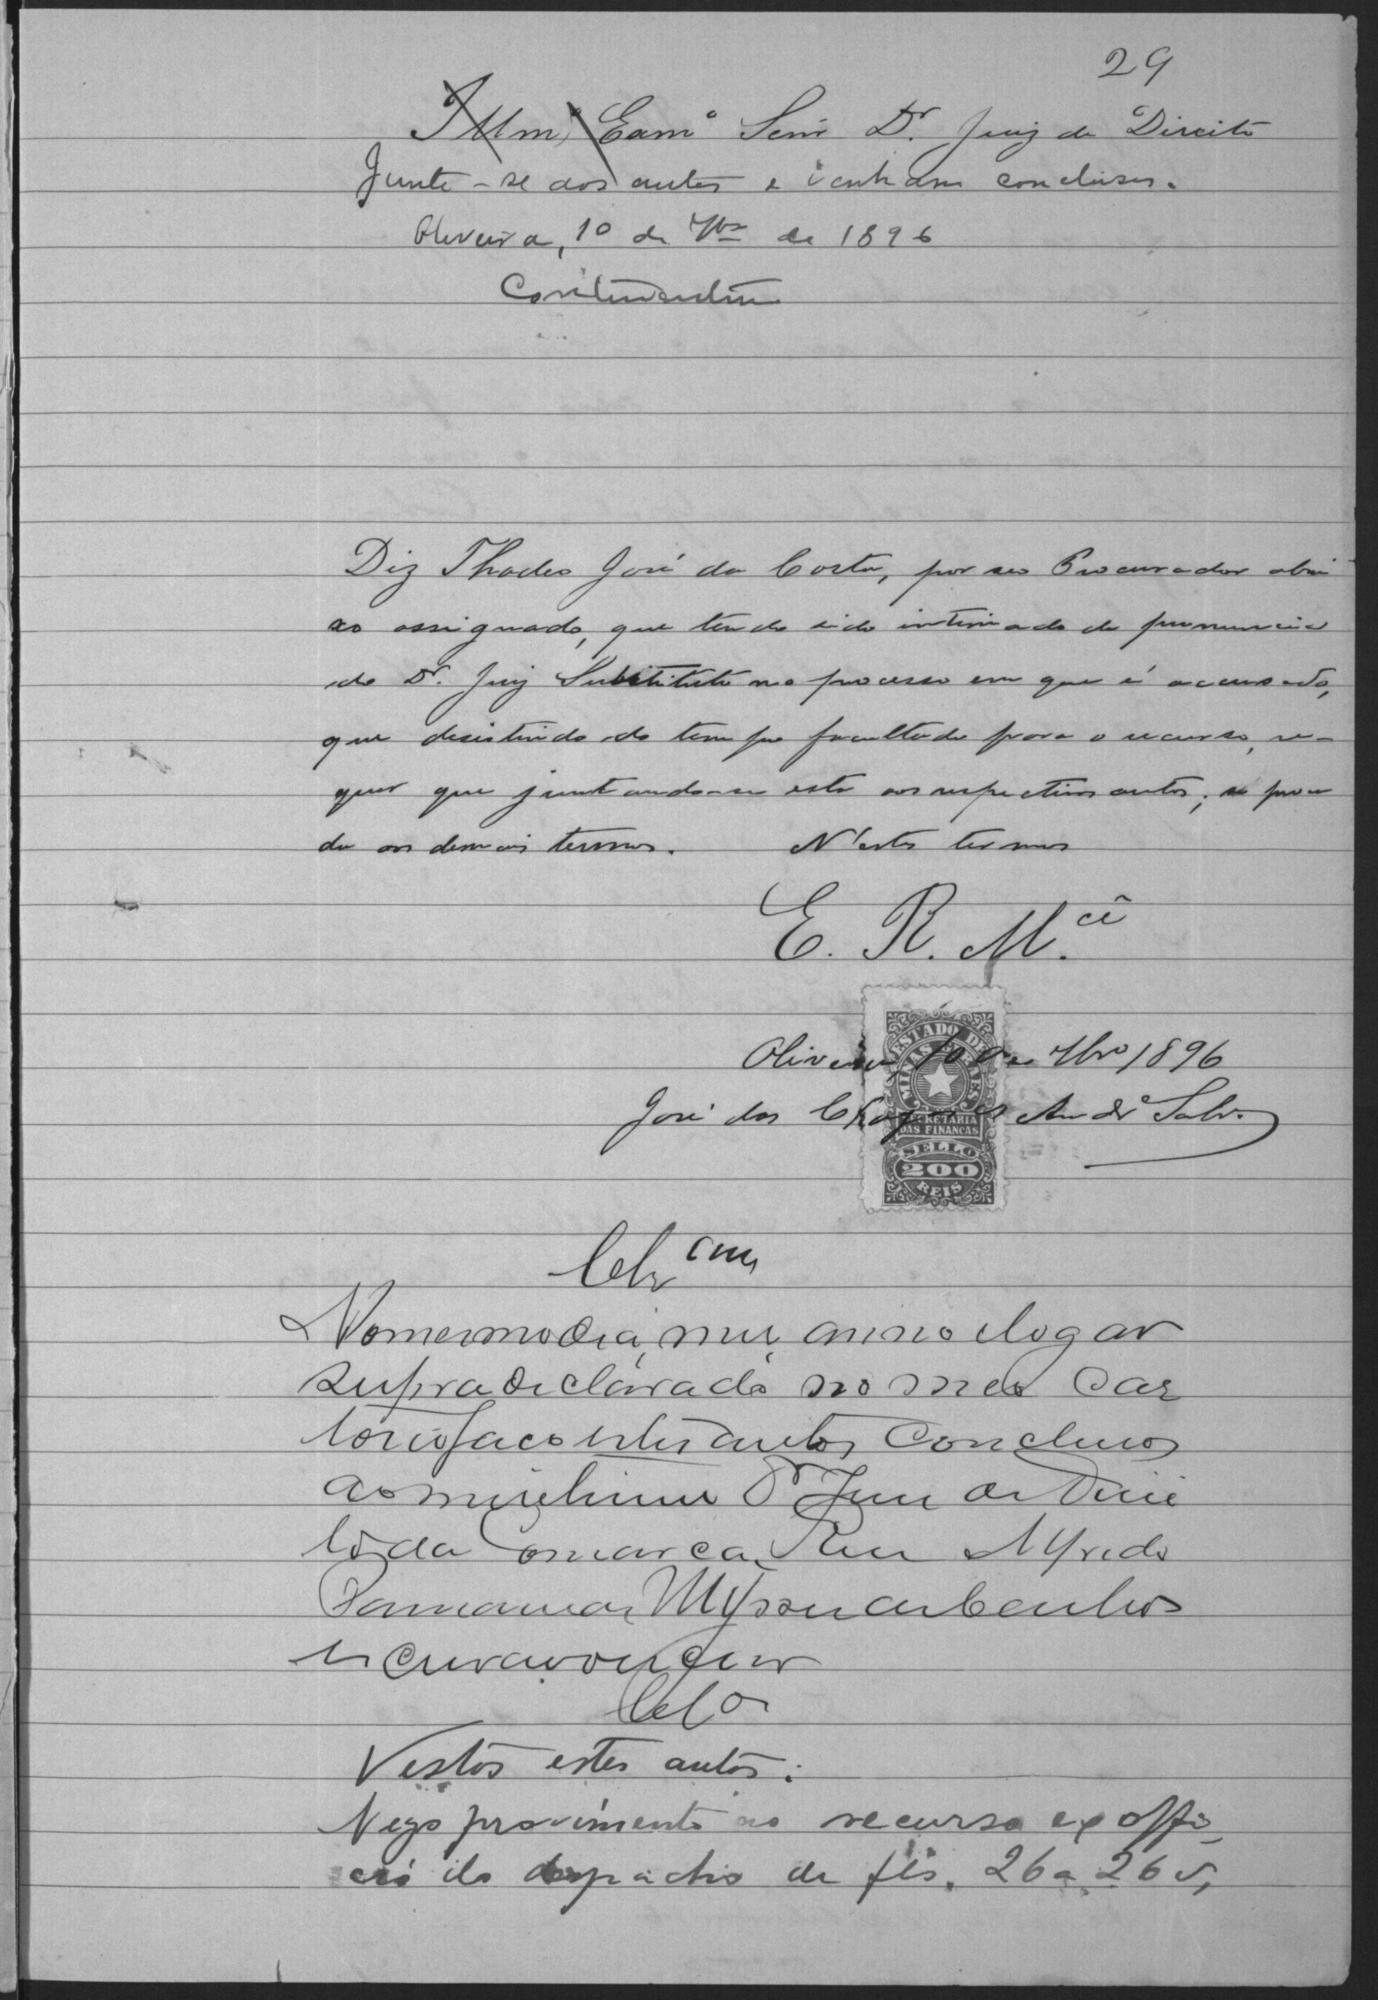 29
Illm. Exmº Senr Dr. Juiz de Direito
Junte-se aos autos e venham conclusos.
Oliveira, 10 de 7bro de 1896
Diz Thadeo José da Costa, por seo Procurador abai
xo assignado, que tendo sido intimado da pronuncia
do Dr. Juiz Substituto no processo em que é accusado,
que desistindo do tempo facultado para o recurso, re-
quer que juntando-se esta aos respectivos autos, se proce
da aos demais termos. N'estes termos
E. R. M.cê
Oliveira, 10 de 7bro 1896
José das Chagas Andre Salv.
ESTADO DE MINAS GERAES
SECRETARIA DAS FINANÇAS
SELLO
200
REIS
Clz am
No mesmo dia, mez, anno e logar
supra declarado no meo car
torio faco estes autos conclusos
ao meretissimo Dr Juiz de Direi
to da Comarca, Alfredo
escrivão
Clos
Vistos estes autos:
Nego provimento ao recurso ex offi
cio do despacho de fls. 26 a 26 v,